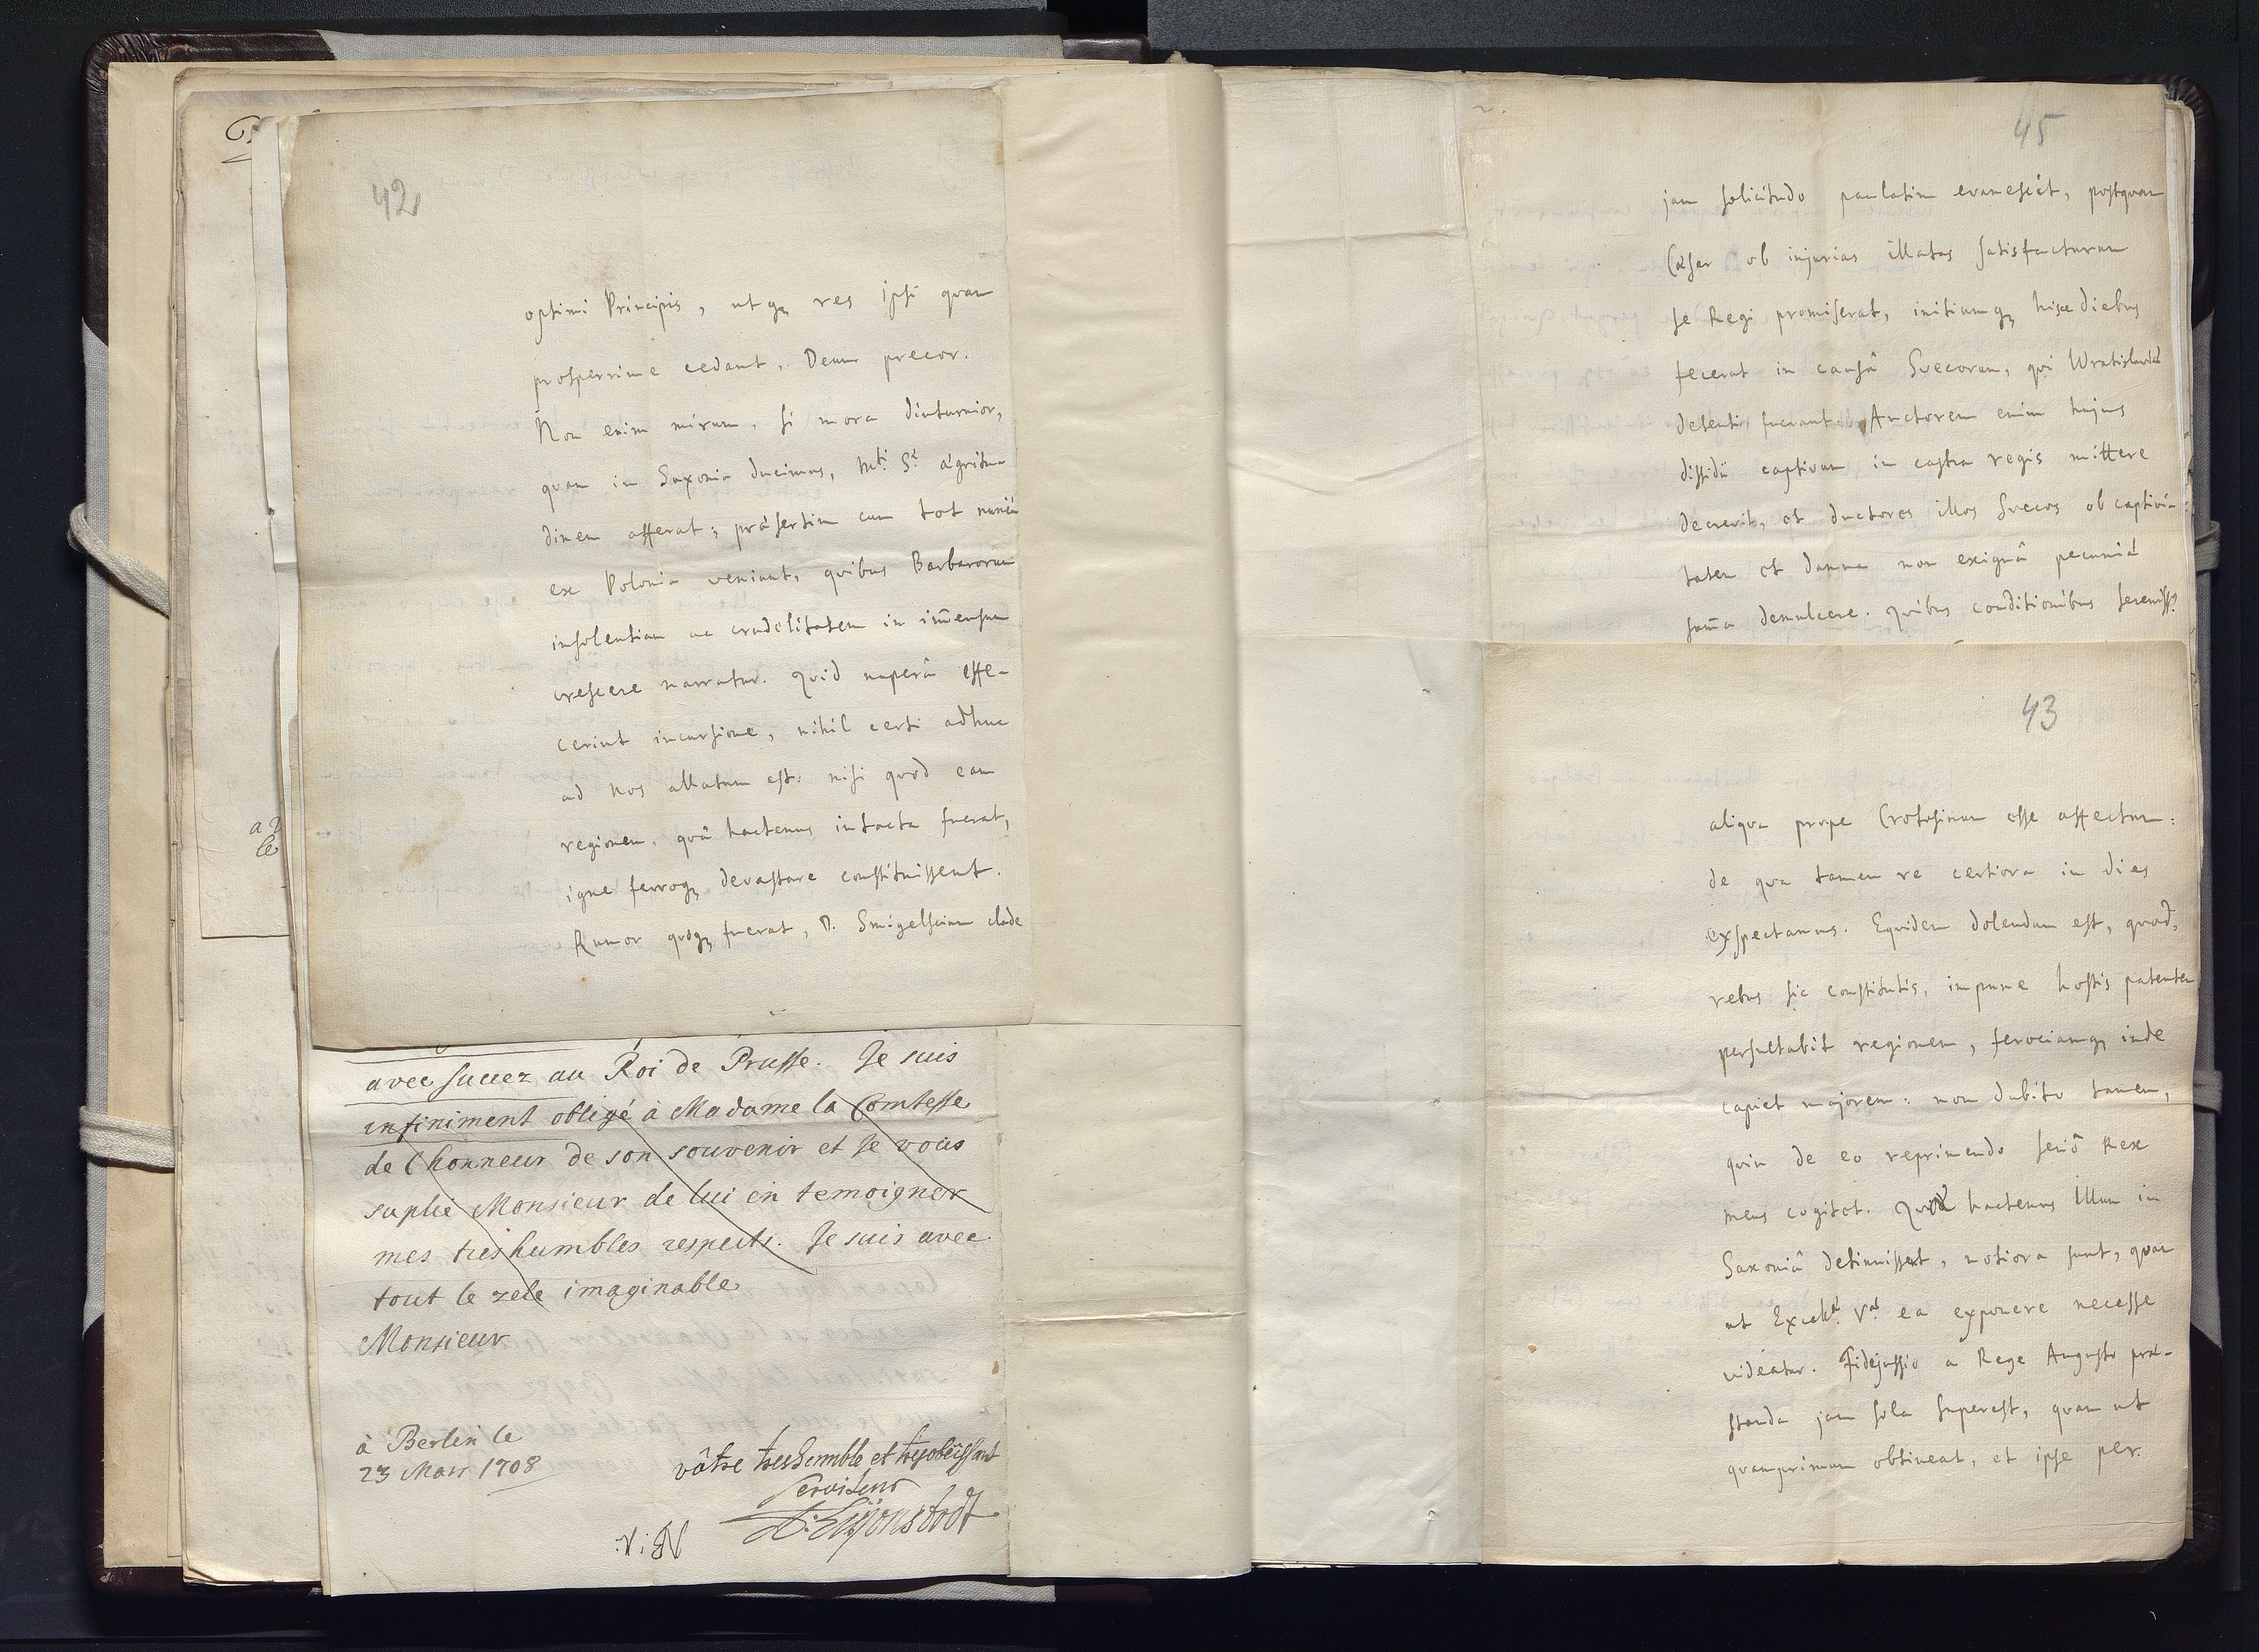 42
optimi Principis, utqꝫ res ipsi quam
prosperrime cedant, Deum precor.
Non enim mirum, si mora diuturnior,
quam in Saxonia ducimus, Mti. Sæ ægritu-
dinem afferat; præsertim cum tot nuncia
ex Polonia veniant, quibus Barbarorum
insolentiam ac crudelitatem in im̄ensum
crescere narratur. Quid nuperâ effe-
cerint incursione, nihil certi adhuc
ad nos allatum est: nisi quod eam
regionem, quæ hactenus intacta fuerat,
igne ferroqꝫ devastare constituissent.
Rumor quoqꝫ fuerat, D. Smigelscium clade
avec succez au Roi de Prusse. Je suis
infiniment obligé à Madame la Comtesse
de l'honneur de son souvenir et je vous
suplie Monsieur de lui en temoigner
mes tres humbles respects. Je suis avec
tout le zele imaginable
Monsieur
à Berlin le
23 Mars 1708
vôtre tres humble et tres obeissant
Serviteur
45
jam solicitudo paulatim evanescit, postquam
Cæsar ob injurias illatas satisfacturum
se Regi promiserat, initiumqꝫ hisce diebus
fecerat in causâ Svecorum, qvi Wratislaviæ
detenti fuerant. Auctorem enim hujus
dissidii captivum in castra regis mittere
decrevit, et ductores illos Svecos ob captivi-
tatem et damna non exiguâ pecuniæ
sum̄a demulcere. Quibus conditionibus sereniss.
43
aliqva prope Crotosinum esse affectum:
de qva tamen re certiora in dies
exspectamus. Eqvidem dolendum est, quod,
rebus sic constitutis, impune hostis patentem
persultabit regionem, ferociamqꝫ inde
capiet majorem: non dubito tamen,
quin de eo reprimendo seriò Rex
meus cogitet. Quæ hactenus Illum in
Saxoniâ detinuissent, notiora sunt, quam
ut Excellæ. Væ ea exponere necesse
videatur. Fidejussio a Rege Augusto præ-
standa jam sola superest, quam ut
quamprimum obtineat, et ipse per.